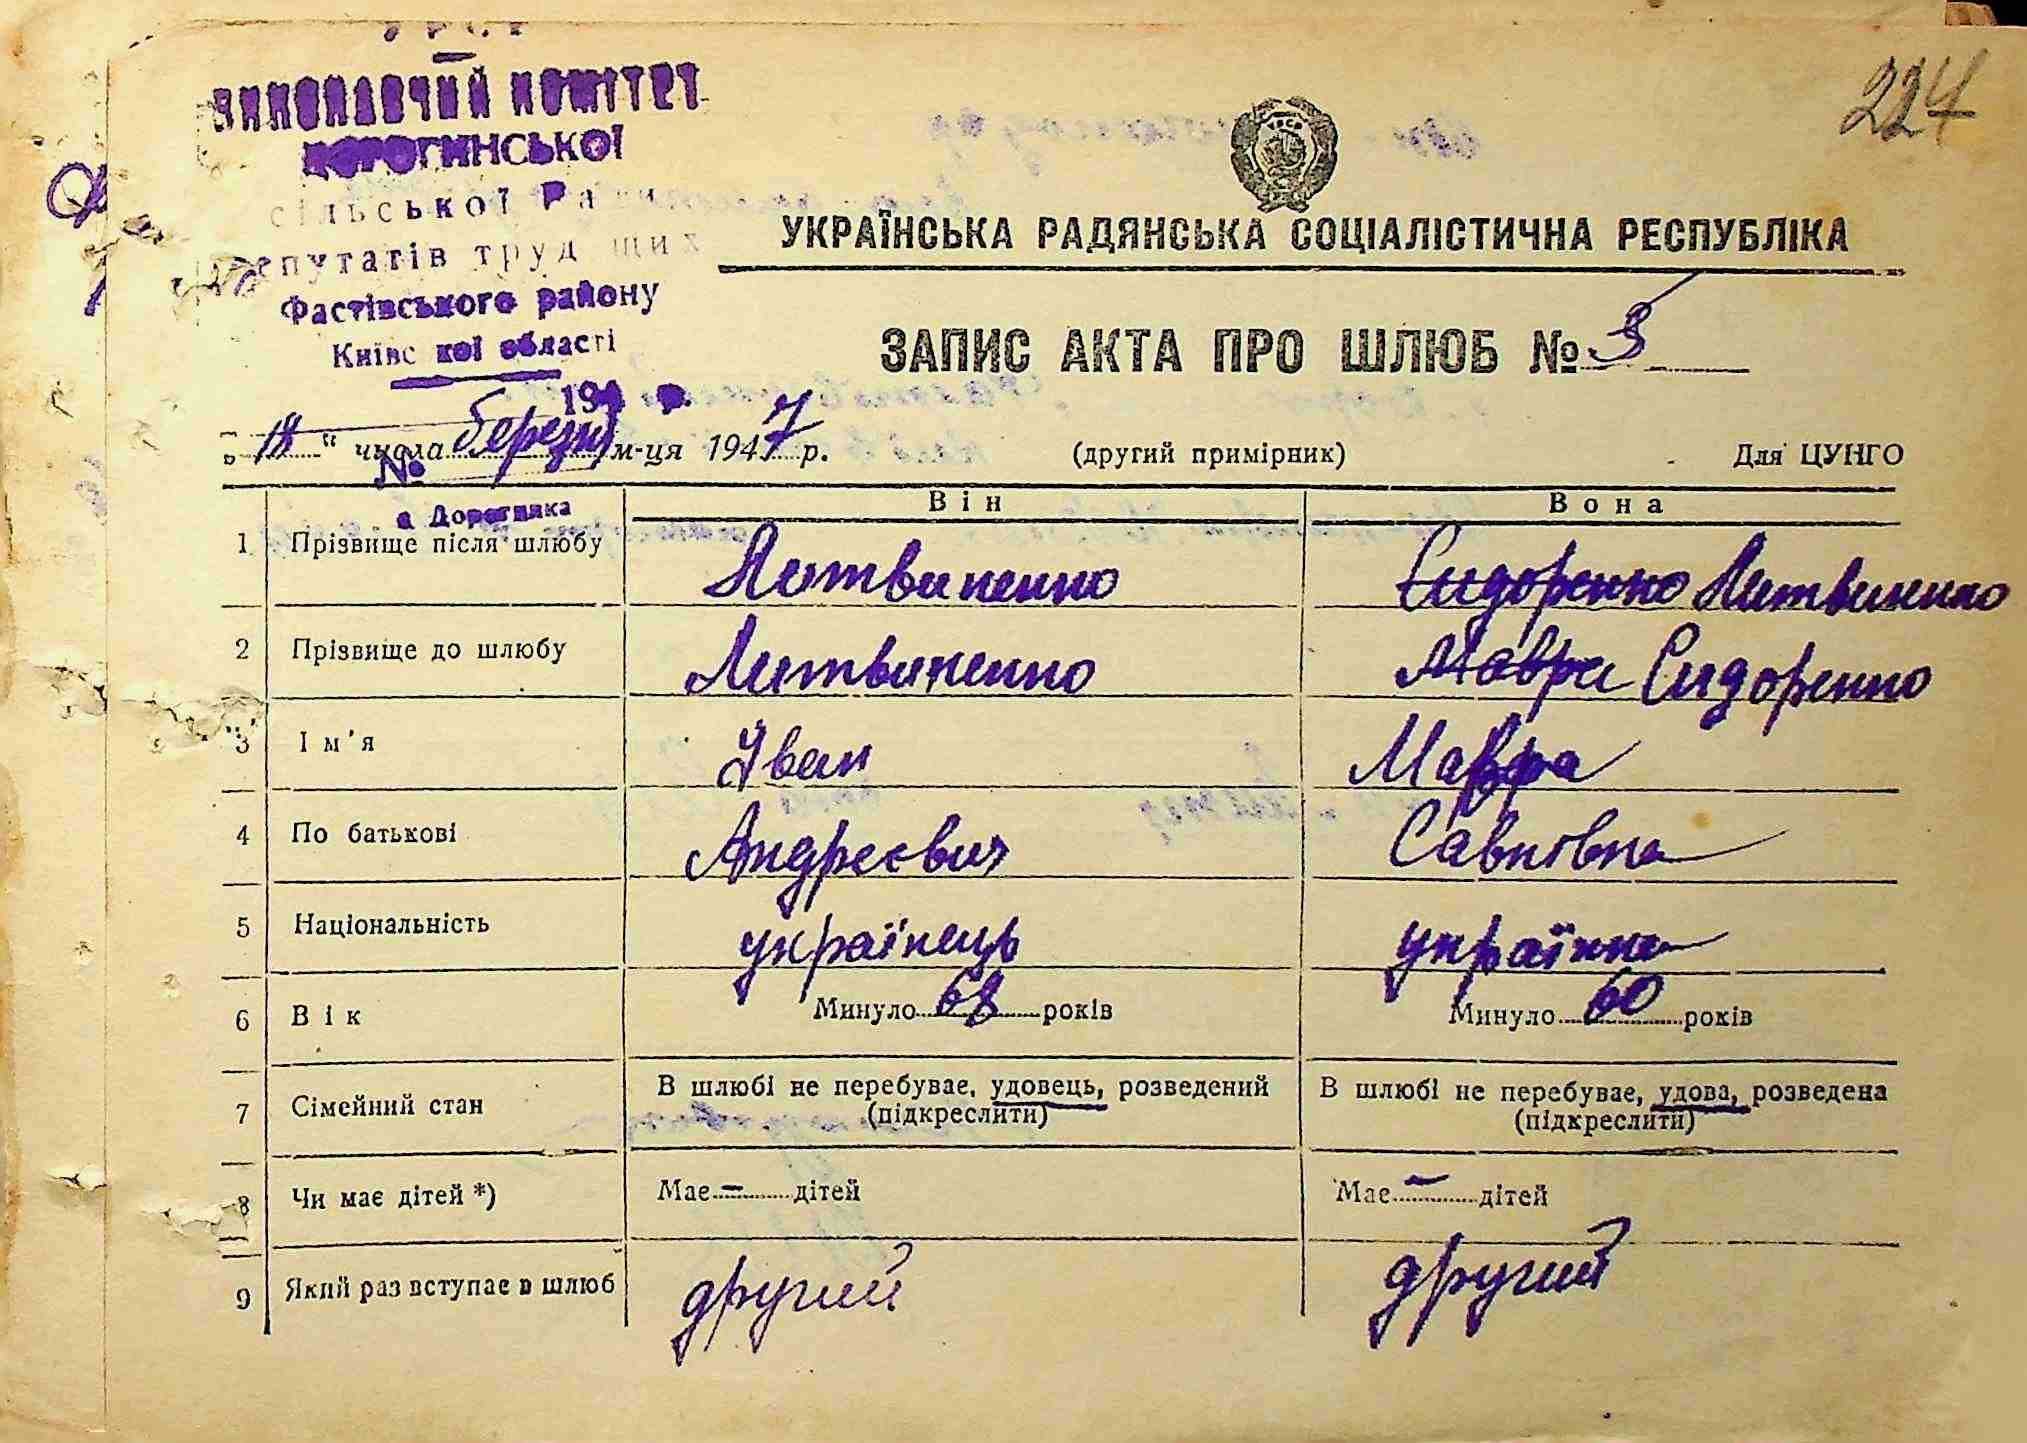 УРСР
ВИКОНАВЧИЙ КОМІТЕТ
ДОРОГИНСЬКОЇ
сільської Ради
депутатів трудящих
Фастівського району
Київської області
194 р.
№
с Дорогинка
224
УКРАЇНСЬКА РАДЯНСЬКА СОЦІАЛІСТИЧНА РЕСПУБЛІКА
ЗАПИС АКТА ПРО ШЛЮБ № 3
„18" числа березня м-ця 1947 р. (другий примірник) Для ЦУНГО
Він Вона
1 Прізвище після шлюбу Литвиненко Сидоренко Литвиненко
2 Прізвище до шлюбу Литвиненко Мавра Сидоренко
3 Ім'я Іван Мавра
4 По батькові Андреєвич Савківна
5 Національність українець українка
6 Вік Минуло 68 років Минуло 60 років
7 Сімейний стан В шлюбі не перебуває, удовець, розведений (підкреслити) В шлюбі не перебуває, удова, розведена (підкреслити)
8 Чи має дітей *) Має - дітей Має - дітей
9 Який раз вступає в шлюб другий другий